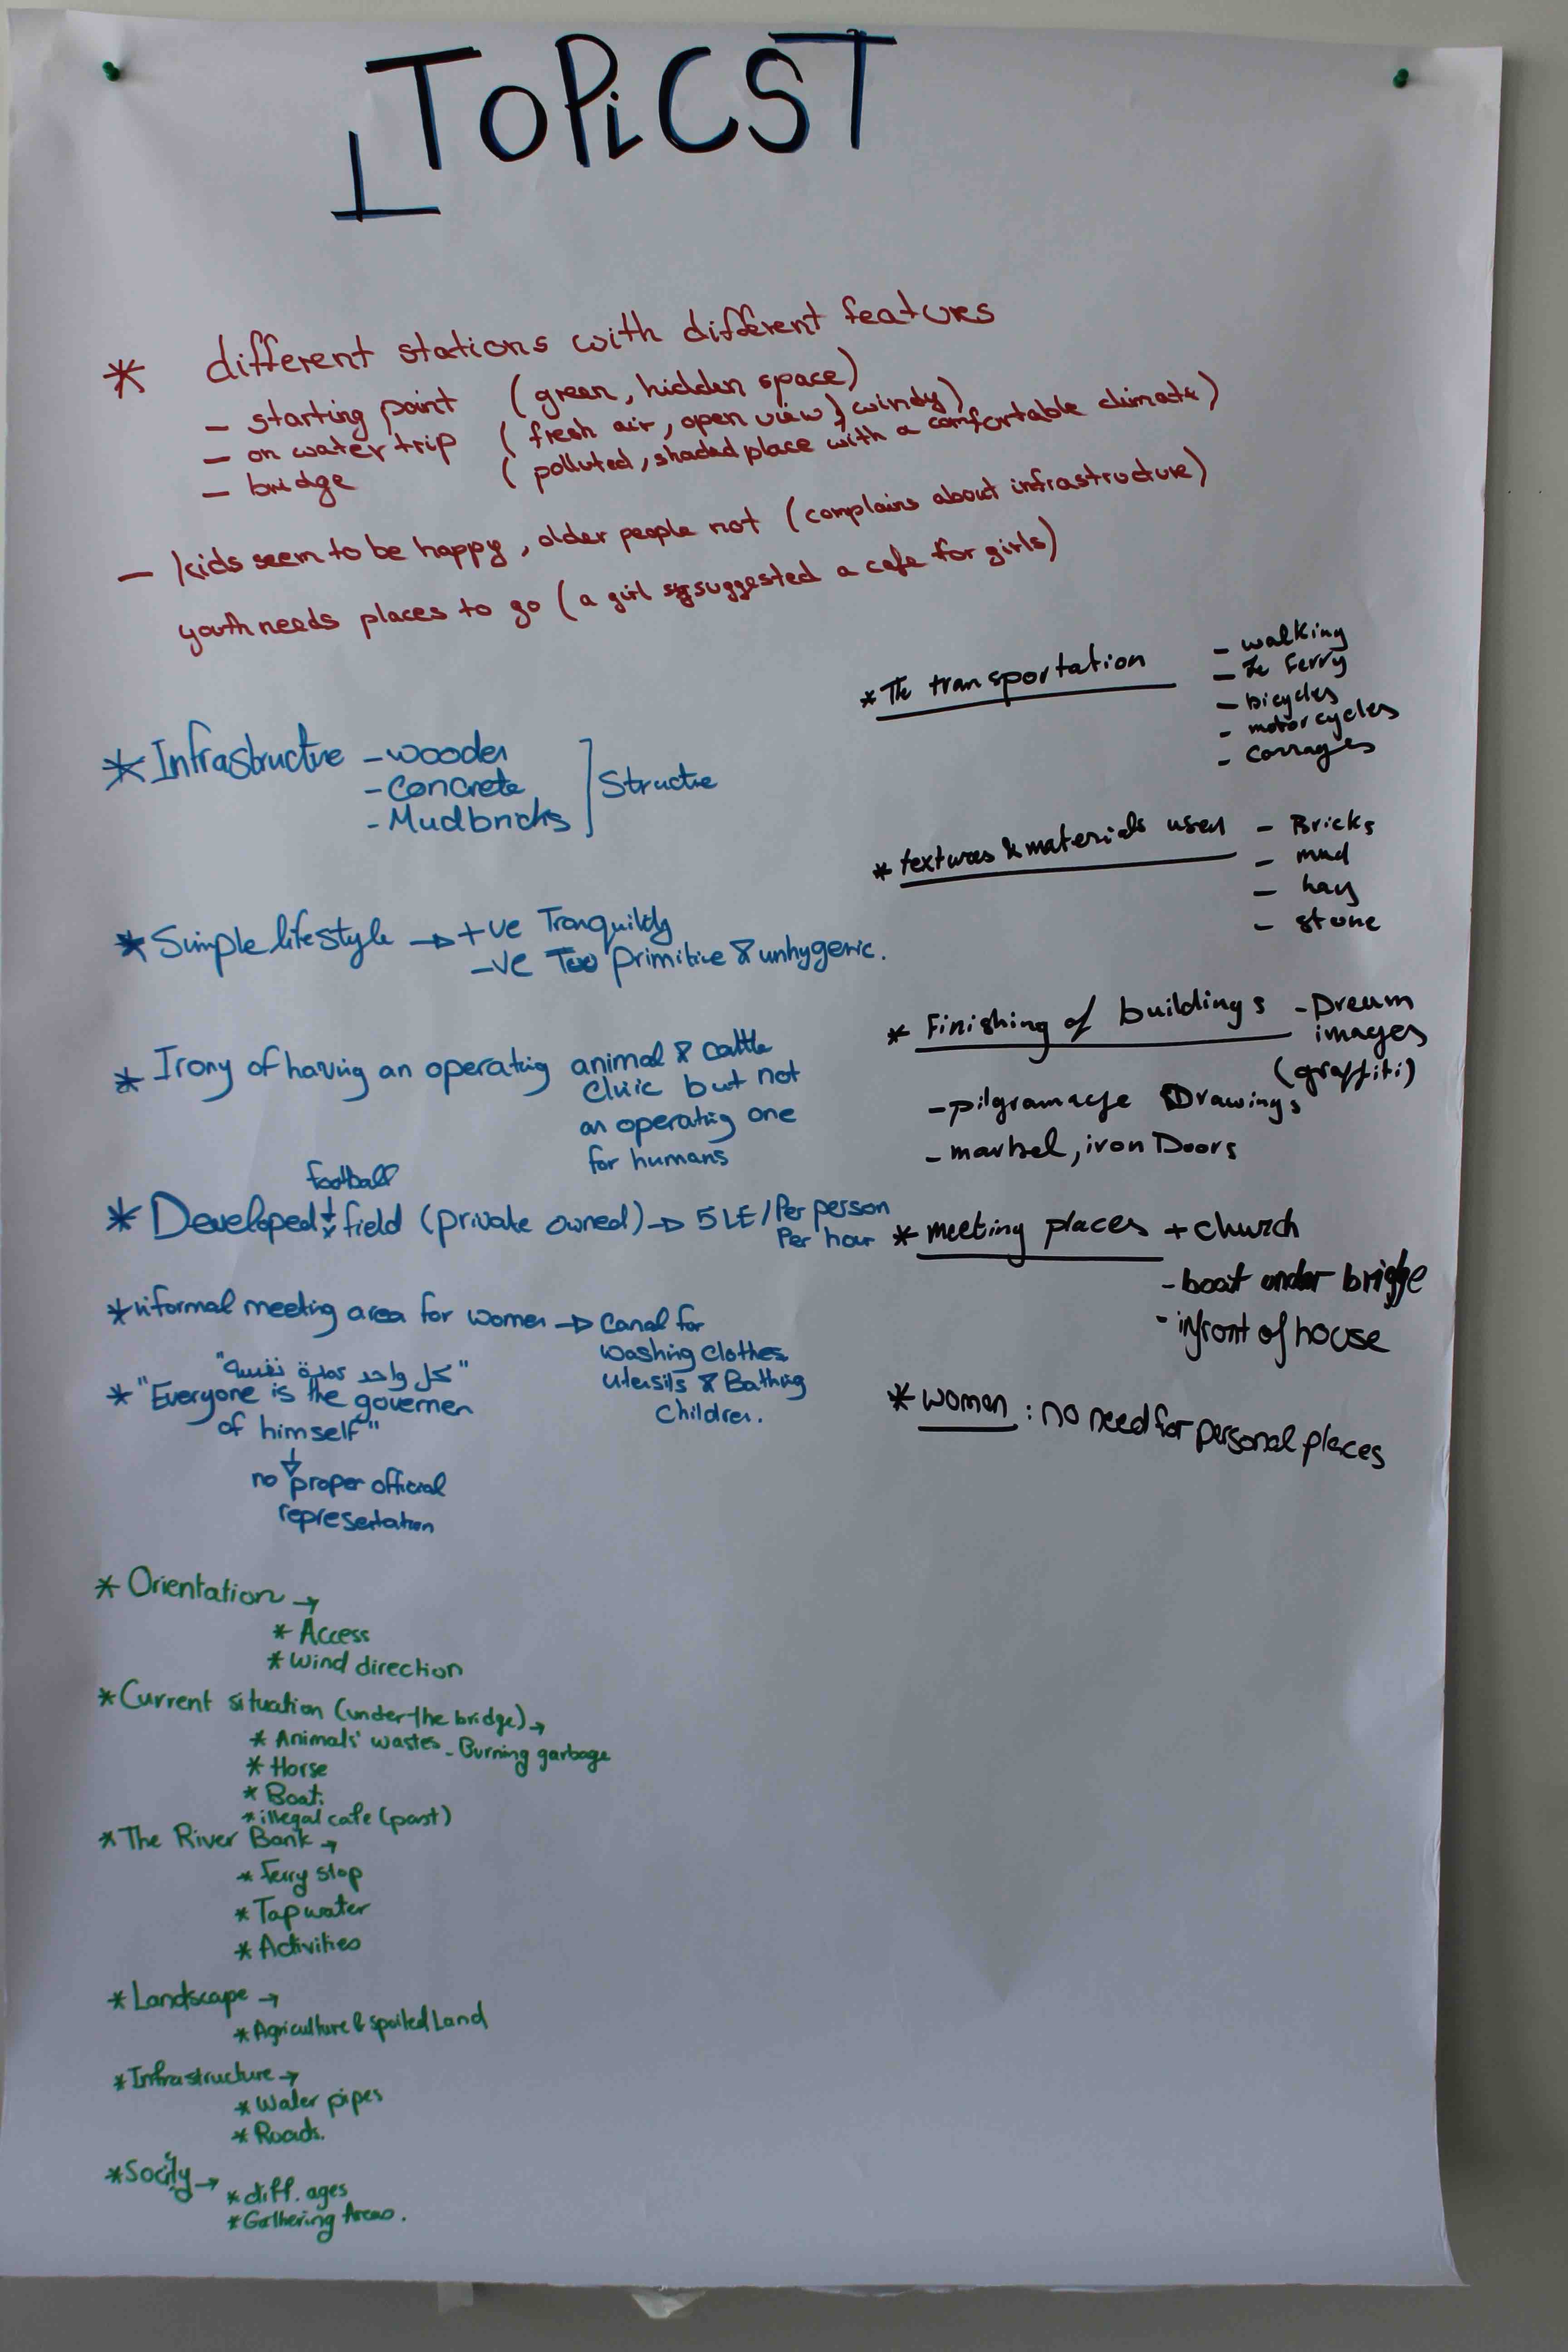 TOPiCS
* different stations with different features
- starting point (green, hidden space)
- on water trip (fresh air, open view, windy)
- bridge (polluted, shaded place with a comfortable climate)
- kids seem to be happy, older people not (complains about infrastructure)
youth needs places to go (a girl suggested a cafe for girls)
* Infrastructure - wooden
- Concrete
- Mudbricks
Structure
* Simple lifestyle → +ve Tranquility
-ve Too primitive & unhygenic.
* Irony of having an operating animal & cattle
clinic but not
an operating one
for humans
football
* Developed field (private owned) → 5 LE/Per person
Per hour
* informal meeting area for women → Canal for
washing clothes,
utensils & Bathing
Children.
"كل واحد عمدة نفسه"
* "Everyone is the governer
of himself"
↓
no proper official
representation
* Orientation →
* Access
* Wind direction
* Current situation (under the bridge) →
* Animals' wastes - Burning garbage
* Horse
* Boat.
* illegal cafe (past)
* The River Bank →
* Ferry stop
* Tap water
* Activities
* Landscape →
* Agriculture & spoiled Land
* Infrastructure →
* Water pipes
* Roads.
* Society →
* diff. ages
* Gathering Areas.
* The transportation
- walking
- The Ferry
- bicycles
- motorcycles
- carrages
* textures & materials used - Bricks
- mud
- hay
- stone
* Finishing of buildings - Dream
images
(graffiti)
- pilgramage Drawings
- marbel, iron Doors
* meeting places + church
- boat under bridge
- infront of house
* women : no need for personal places